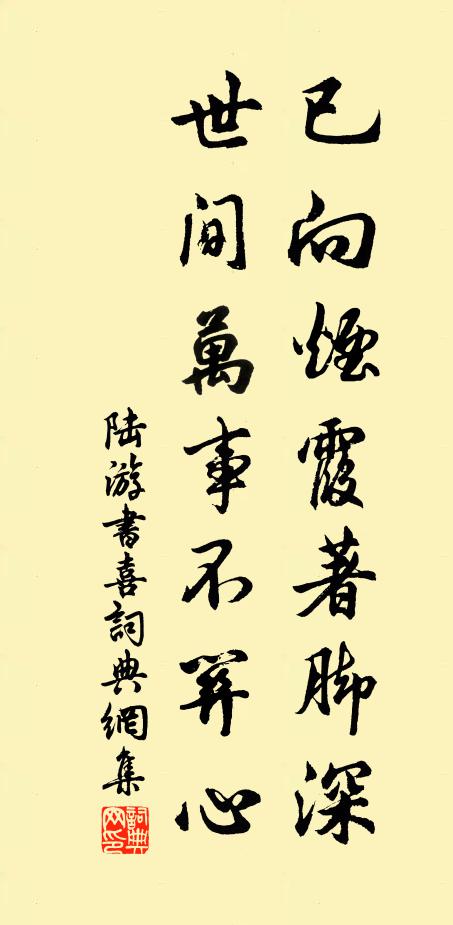 已向煙霞著脚深
世間萬事不關心
陸游書喜詞典網集
詞典网印